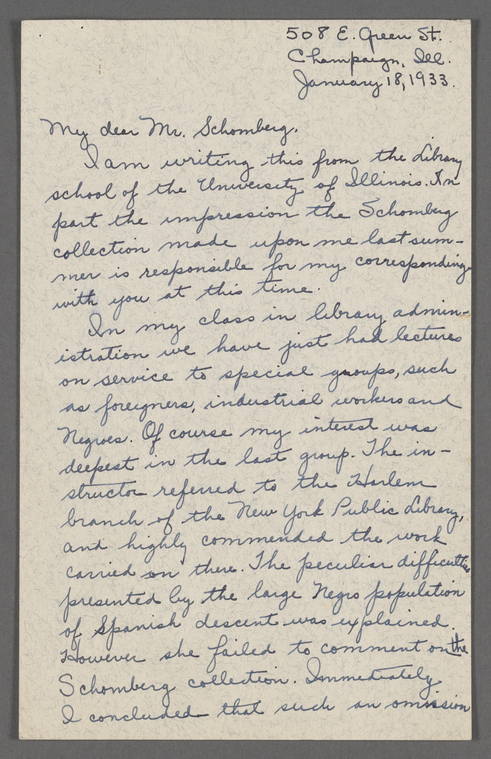 508 E. Green St.
Champaign, Ill.
January 18, 1933.
My dear Mr. Schomberg,
I am writing this from the Library
school of the University of Illinois. In
part the impression the Schomberg
collection made upon me last sum-
mer is responsible for my corresponding
with you at this time.
In my class in library admin-
istration we have just had lectures
on service to special groups, such
as foreigners, industrial workers and
Negroes. Of course my interest was
deepest in the last group. The in-
structor referred to the Harlem
branch of the New York Public Library,
and highly commended the work
carried on there. The peculiar difficulties
presented by the large Negro population
of Spanish descent was explained.
However she failed to comment on the
Schomberg collection. Immediately
I concluded that such an omission